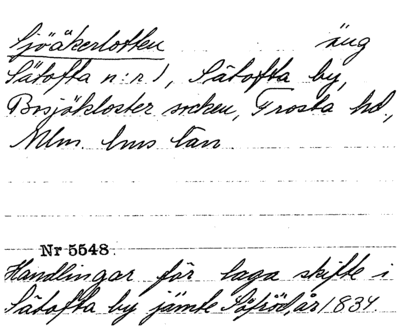 Sjöåkerlotten äng
Sätofta n:r 1, Sätofta by,
Bosjökloster socken, Frosta hd,
Mlm. hus län.
Nr 5548
Handlingar för laga skifte i
Sätofta by jämte Säfröd, år 1834.